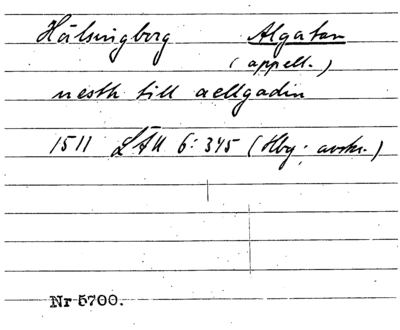 Hälsingborg Algatan
(appell.)
nesth till aellgadin
1511 LÄU 6:345 (Hbg; avskr.)
Nr 5700.